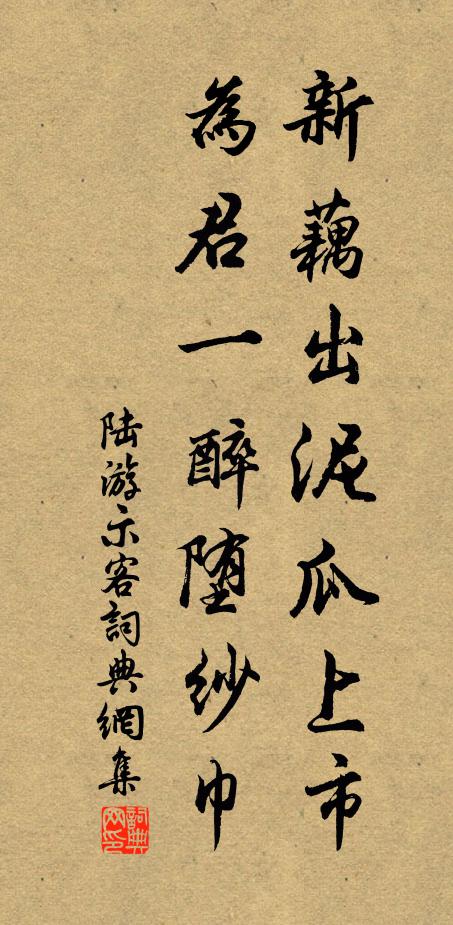 新藕出泥瓜上市
為君一醉堕紗巾
陆游示客詞典網集
詞典網印